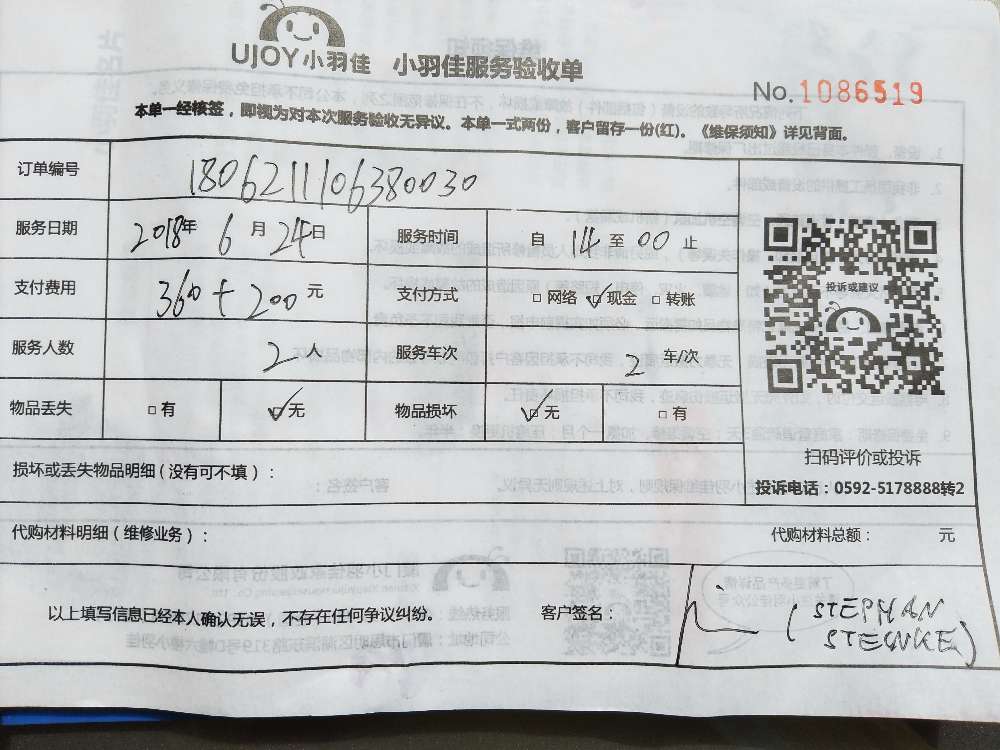 UJOY小羽佳 小羽佳服务验收单
No. 1086519
本单一经核签，即视为对本次服务验收无异议。本单一式两份，客户留存一份(红)。《维保须知》详见背面。
订单编号 1806211106380030
服务日期 2018年 6月 24日 服务时间 自 14 至 00 止
支付费用 360 + 200 元 支付方式 □ 网络 ☑ 现金 □ 转账
服务人数 2 人 服务车次 2 车/次
物品丢失 □ 有 ☑ 无 物品损坏 ☑ 无 □ 有
投诉或建议
扫码评价或投诉
投诉电话：0592-5178888转2
损坏或丢失物品明细（没有可不填）：
代购材料明细（维修业务）： 代购材料总额： 元
以上填写信息已经本人确认无误，不存在任何争议纠纷。 客户签名： (STEPHAN
STEWKE)